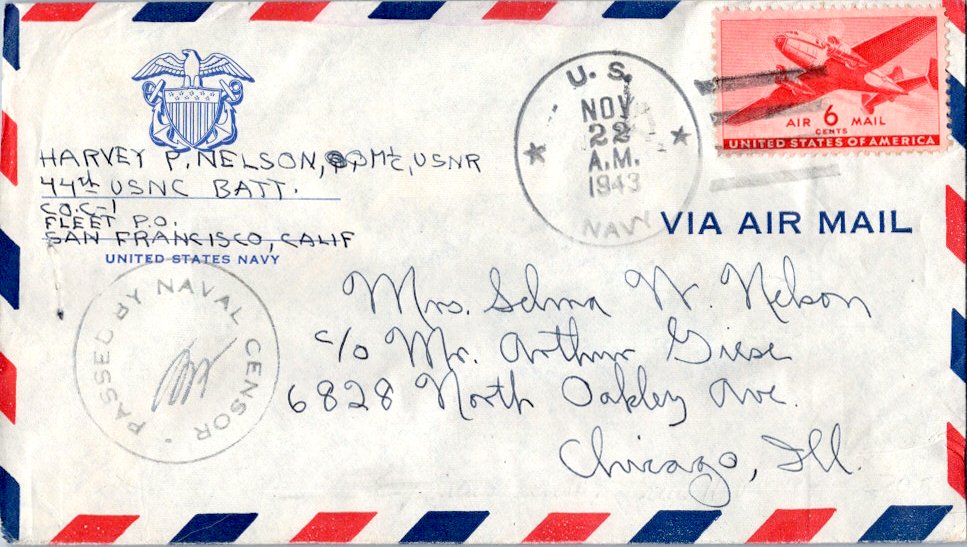 HARVEY P. NELSON, M1/C, USNR
44th USNC BATT.
CO. C-1
FLEET P.O.
SAN FRANCISCO, CALIF
UNITED STATES NAVY
U. S.
NOV
22
A.M.
1943
NAVY
AIR 6 MAIL
CENTS
UNITED STATES OF AMERICA
VIA AIR MAIL
PASSED BY NAVAL CENSOR
Mrs. Selma W. Nelson
c/o Mr. Arthur Giese
6828 North Oakley Ave.
Chicago, Ill.